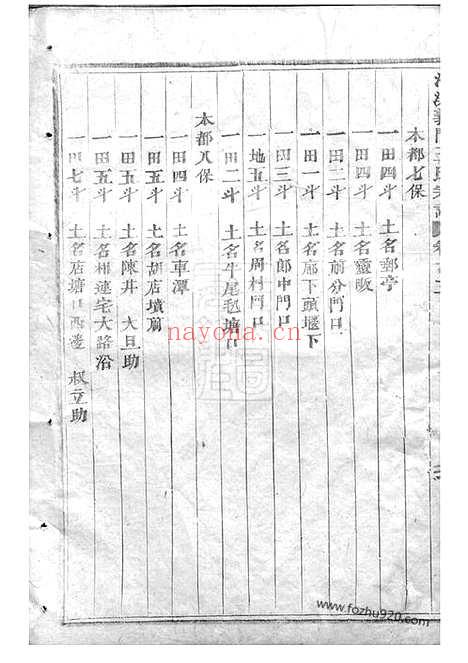 本都七保
一田四斗 土名郵亭
一田四斗 土名靈畈
一田二斗 土名前分門口
一田一斗 土名廊下頭堰下
一田三斗 土名郎中門口
一地五斗 土名周村門口
一田二斗 土名牛尾毛塘口
本都八保
一田四斗 土名車潭
一田五斗 土名胡店墳前
一田五斗 土名陳井 大旦助
一田五斗 土名相連宅大路沿
一田七斗 土名店塘口西邊 叔立助
nayona.cn
www.fozhu920.com